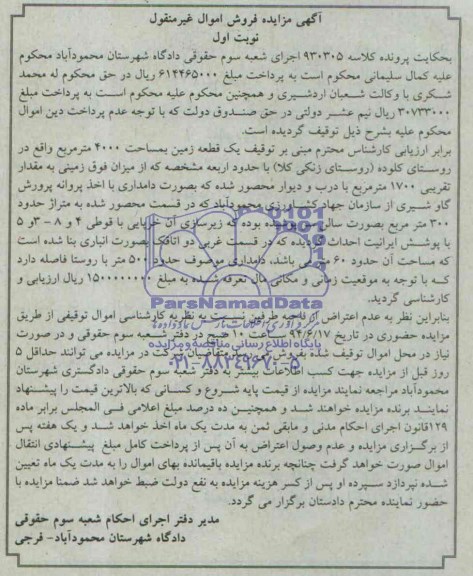 آگهی مزایده فروش اموال غیرمنقول
نوبت اول
بحکایت پرونده کلاسه ۹۳۰۳۰۵ اجرای شعبه سوم حقوقی دادگاه شهرستان محمودآباد محکوم
علیه کمال سلیمانی محکوم است به پرداخت مبلغ ۶۱۴۴۶۵۰۰۰ ریال در حق محکوم له محمد
شکری با وکالت شعبان اردشیری و همچنین محکوم علیه محکوم است به پرداخت مبلغ
۳۰۷۳۳۰۰۰ ریال نیم عشر دولتی در حق صندوق دولت که با توجه عدم پرداخت دین اموال
محکوم علیه بشرح ذیل توقیف گردیده است.
برابر ارزیابی کارشناس محترم مبنی بر توقیف یک قطعه زمین بمساحت ۴۰۰۰ مترمربع واقع در
روستای کلوده (روستای زنگی کلا) با حدود اربعه مشخصه که از میزان فوق زمینی به مقدار
تقریبی ۱۷۰۰ مترمربع با درب و دیوار محصور شده که بصورت دامداری با اخذ پروانه پرورش
گاو شیری از سازمان جهادکشاورزی محمودآباد که در قسمت محصور شده به متراژ حدود
۳۰۰ متر مربع بصورت سالن بوده که زیرسازی آن خرپایی با قوطی ۴ و ۸ - ۳و ۵
با پوشش ایرانیت احداث گردیده که در قسمت غربی دو اتاقک بصورت انباری بنا شده است
که مساحت آن حدود ۶۰ متر می باشد، دامداری موصوف حدود ۵۰۰ متر با روستا فاصله دارد
که با توجه به موقعیت زمانی و مکانی مال تعرفه شده به مبلغ ۱۵۰۰۰۰۰۰۰۰ ریال ارزیابی و
کارشناسی گردید.
بنابراین نظر به عدم اعتراض از ناحیه طرفین نسبت به نظریه کارشناسی اموال توقیفی از طریق
مزایده حضوری در تاریخ ۹۴/۶/۱۷ ساعت ۱۰ صبح در دفتر شعبه سوم حقوقی و در صورت
نیاز در محل اموال توقیف شده بفروش می رسد متقاضیان شرکت در مزایده می توانند حداقل ۵
روز قبل از مزایده جهت کسب اطلاعات بیشتر به دفتر شعبه سوم حقوقی دادگستری شهرستان
محمودآباد مراجعه نمایند مزایده از قیمت پایه شروع و کسانی که بالاترین قیمت را پیشنهاد
نمایند برنده مزایده خواهند شد و همچنین ده درصد مبلغ اعلامی فی المجلس برابر ماده
۱۲۹قانون اجرای احکام مدنی و مابقی ثمن به مدت یک ماه اخذ خواهد شد و یک هفته پس
از برگزاری مزایده و عدم وصول اعتراض به آن پس از پرداخت کامل مبلغ پیشنهادی انتقال
اموال صورت خواهد گرفت چنانچه برنده مزایده باقیمانده بهای اموال را به مدت یک ماه تعیین
شده نپردازد سپرده او پس از کسر هزینه مزایده به نفع دولت ضبط خواهد شد ضمنا مزایده با
حضور نماینده محترم دادستان برگزار می گردد.
مدیر دفتر اجرای احکام شعبه سوم حقوقی
دادگاه شهرستان محمودآباد- فرجی
ParsNamadData
پایگاه اطلاع رسانی مناقصه و مزایده
۰۲۱-۸۸۳۴۹۶۷۰-۵